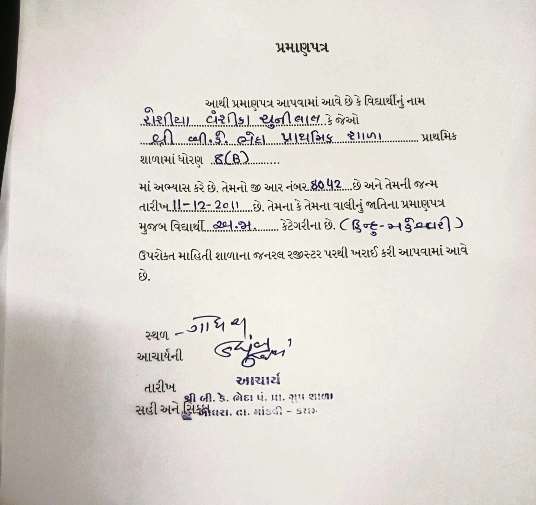 પ્રમાણપત્ર
આથી પ્રમાણપત્ર આપવામાં આવે છે કે વિદ્યાર્થીનું નામ
રોશીયા વંશીકા ચુનીલાલ કે જેઓ
શ્રી બી.કે. ભેદા પ્રાથમિક શાળા પ્રાથમિક
શાળામાં ધોરણ 8(B)
માં અભ્યાસ કરે છે. તેમનો જી આર નંબર 8042 છે અને તેમની જન્મ
તારીખ 11-12-2011 છે. તેમના કે તેમના વાલીનું જાતિના પ્રમાણપત્ર
મુજબ વિદ્યાર્થી અ.જા. કેટેગરીના છે. (હિન્દુ-મહેશ્વરી)
ઉપરોક્ત માહિતી શાળાના જનરલ રજીસ્ટર પરથી ખરાઈ કરી આપવામાં આવે
છે.
સ્થળ - ગોધરા
આચાર્યની
આચાર્ય
તારીખ
શ્રી બી. કે. ભેદા પં. પ્રા. ગ્રુપ શાળા
સહી અને સિક્કા
ગોધરા. તા. માંડવી - કચ્છ